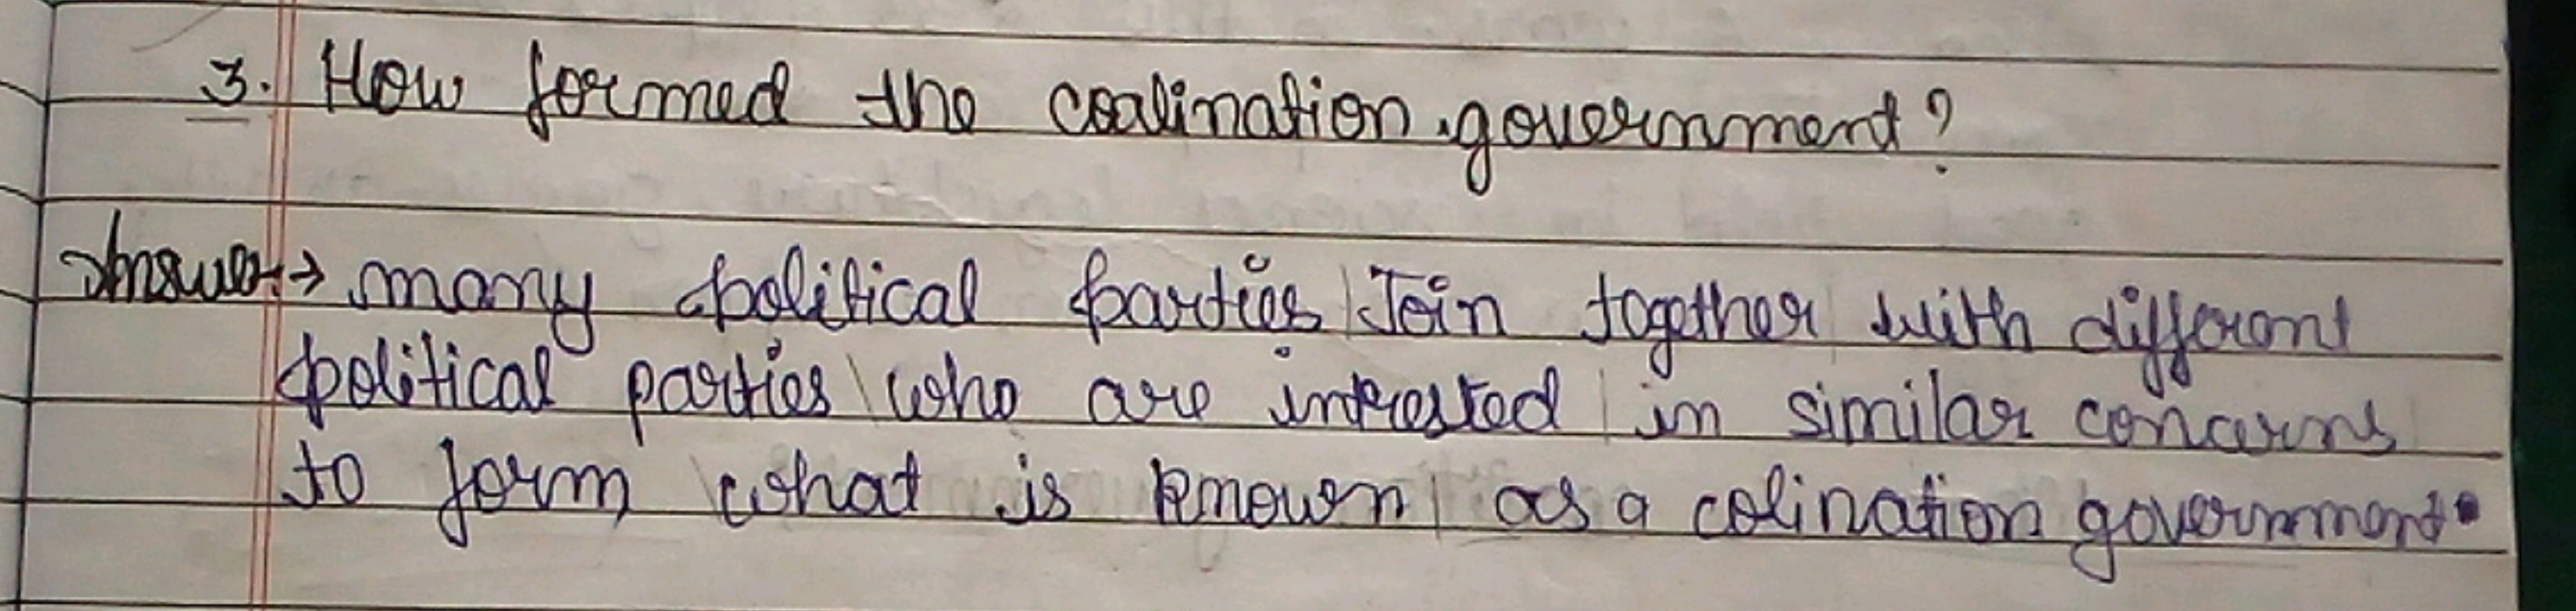 3. How formed the coalination government?
Answer→ many political parties Join together with different
political parties who are intrested in similar concerns
to form what is known as a colination government.